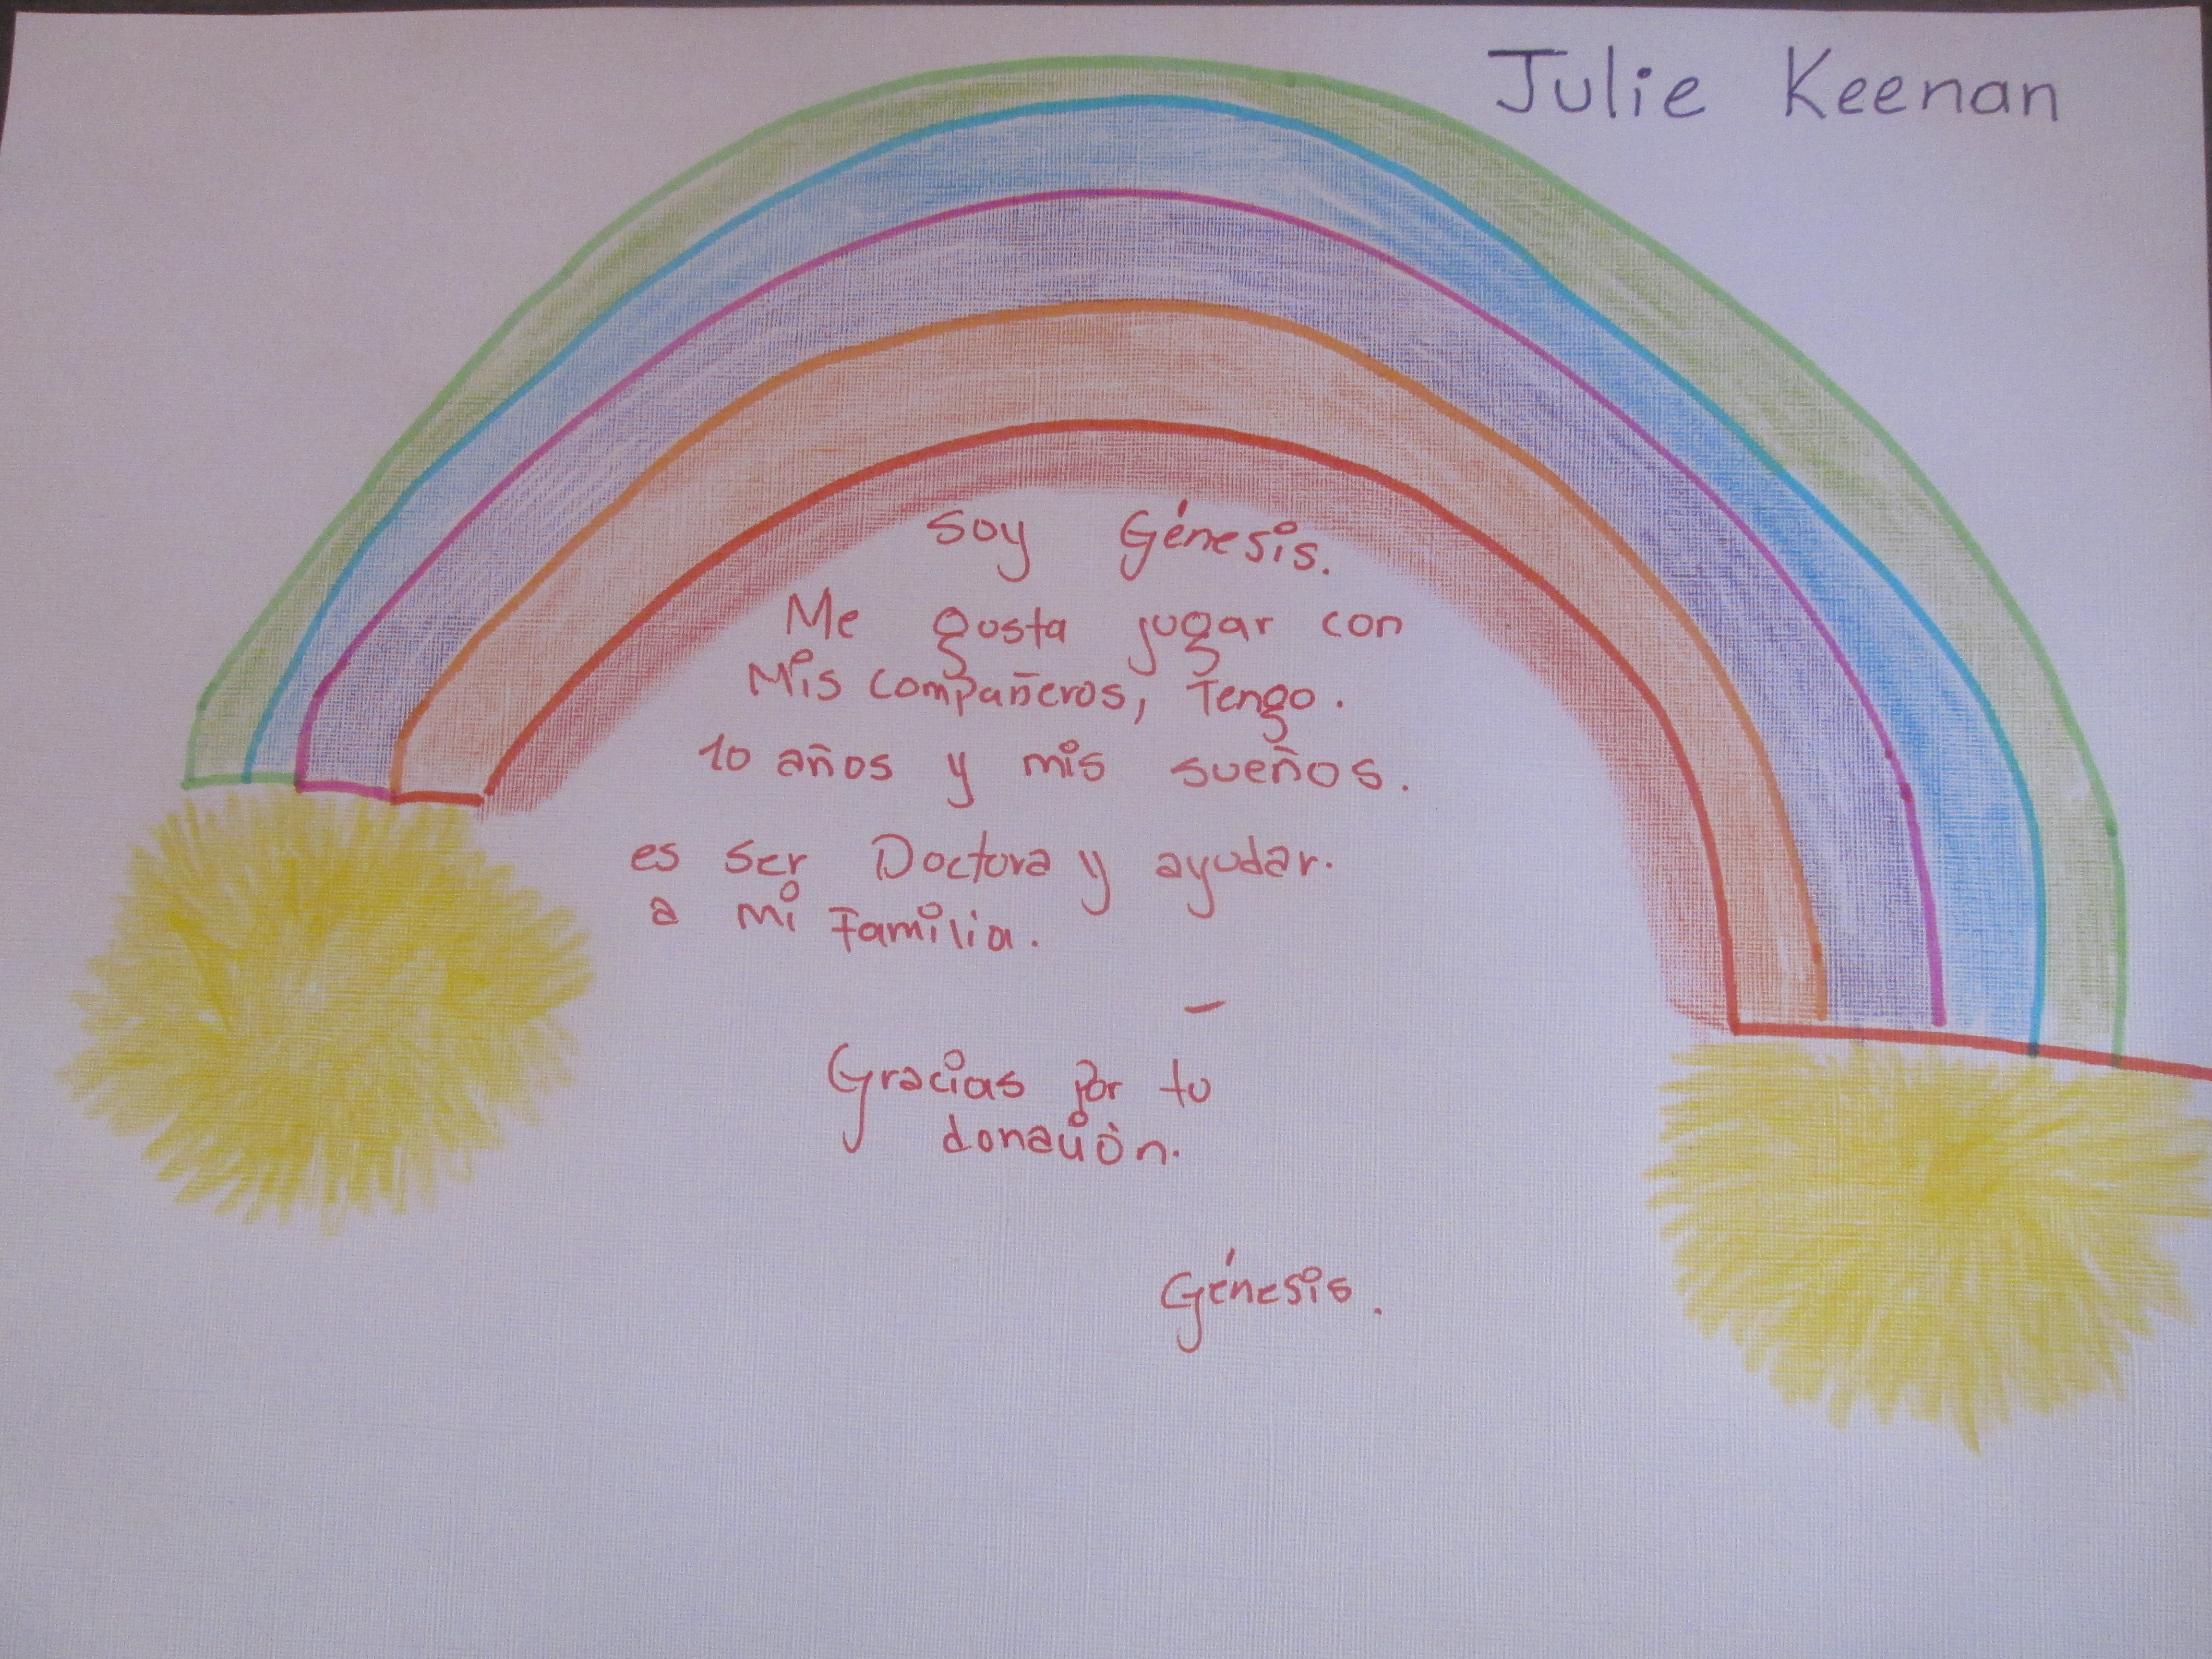 Julie Keenan
Soy Génesis.
Me gusta jugar con
Mis compañeros, Tengo.
10 años y mis sueños.
es ser Doctora y ayudar.
a mi Familia.
Gracias por tu
donación.
Génesis.